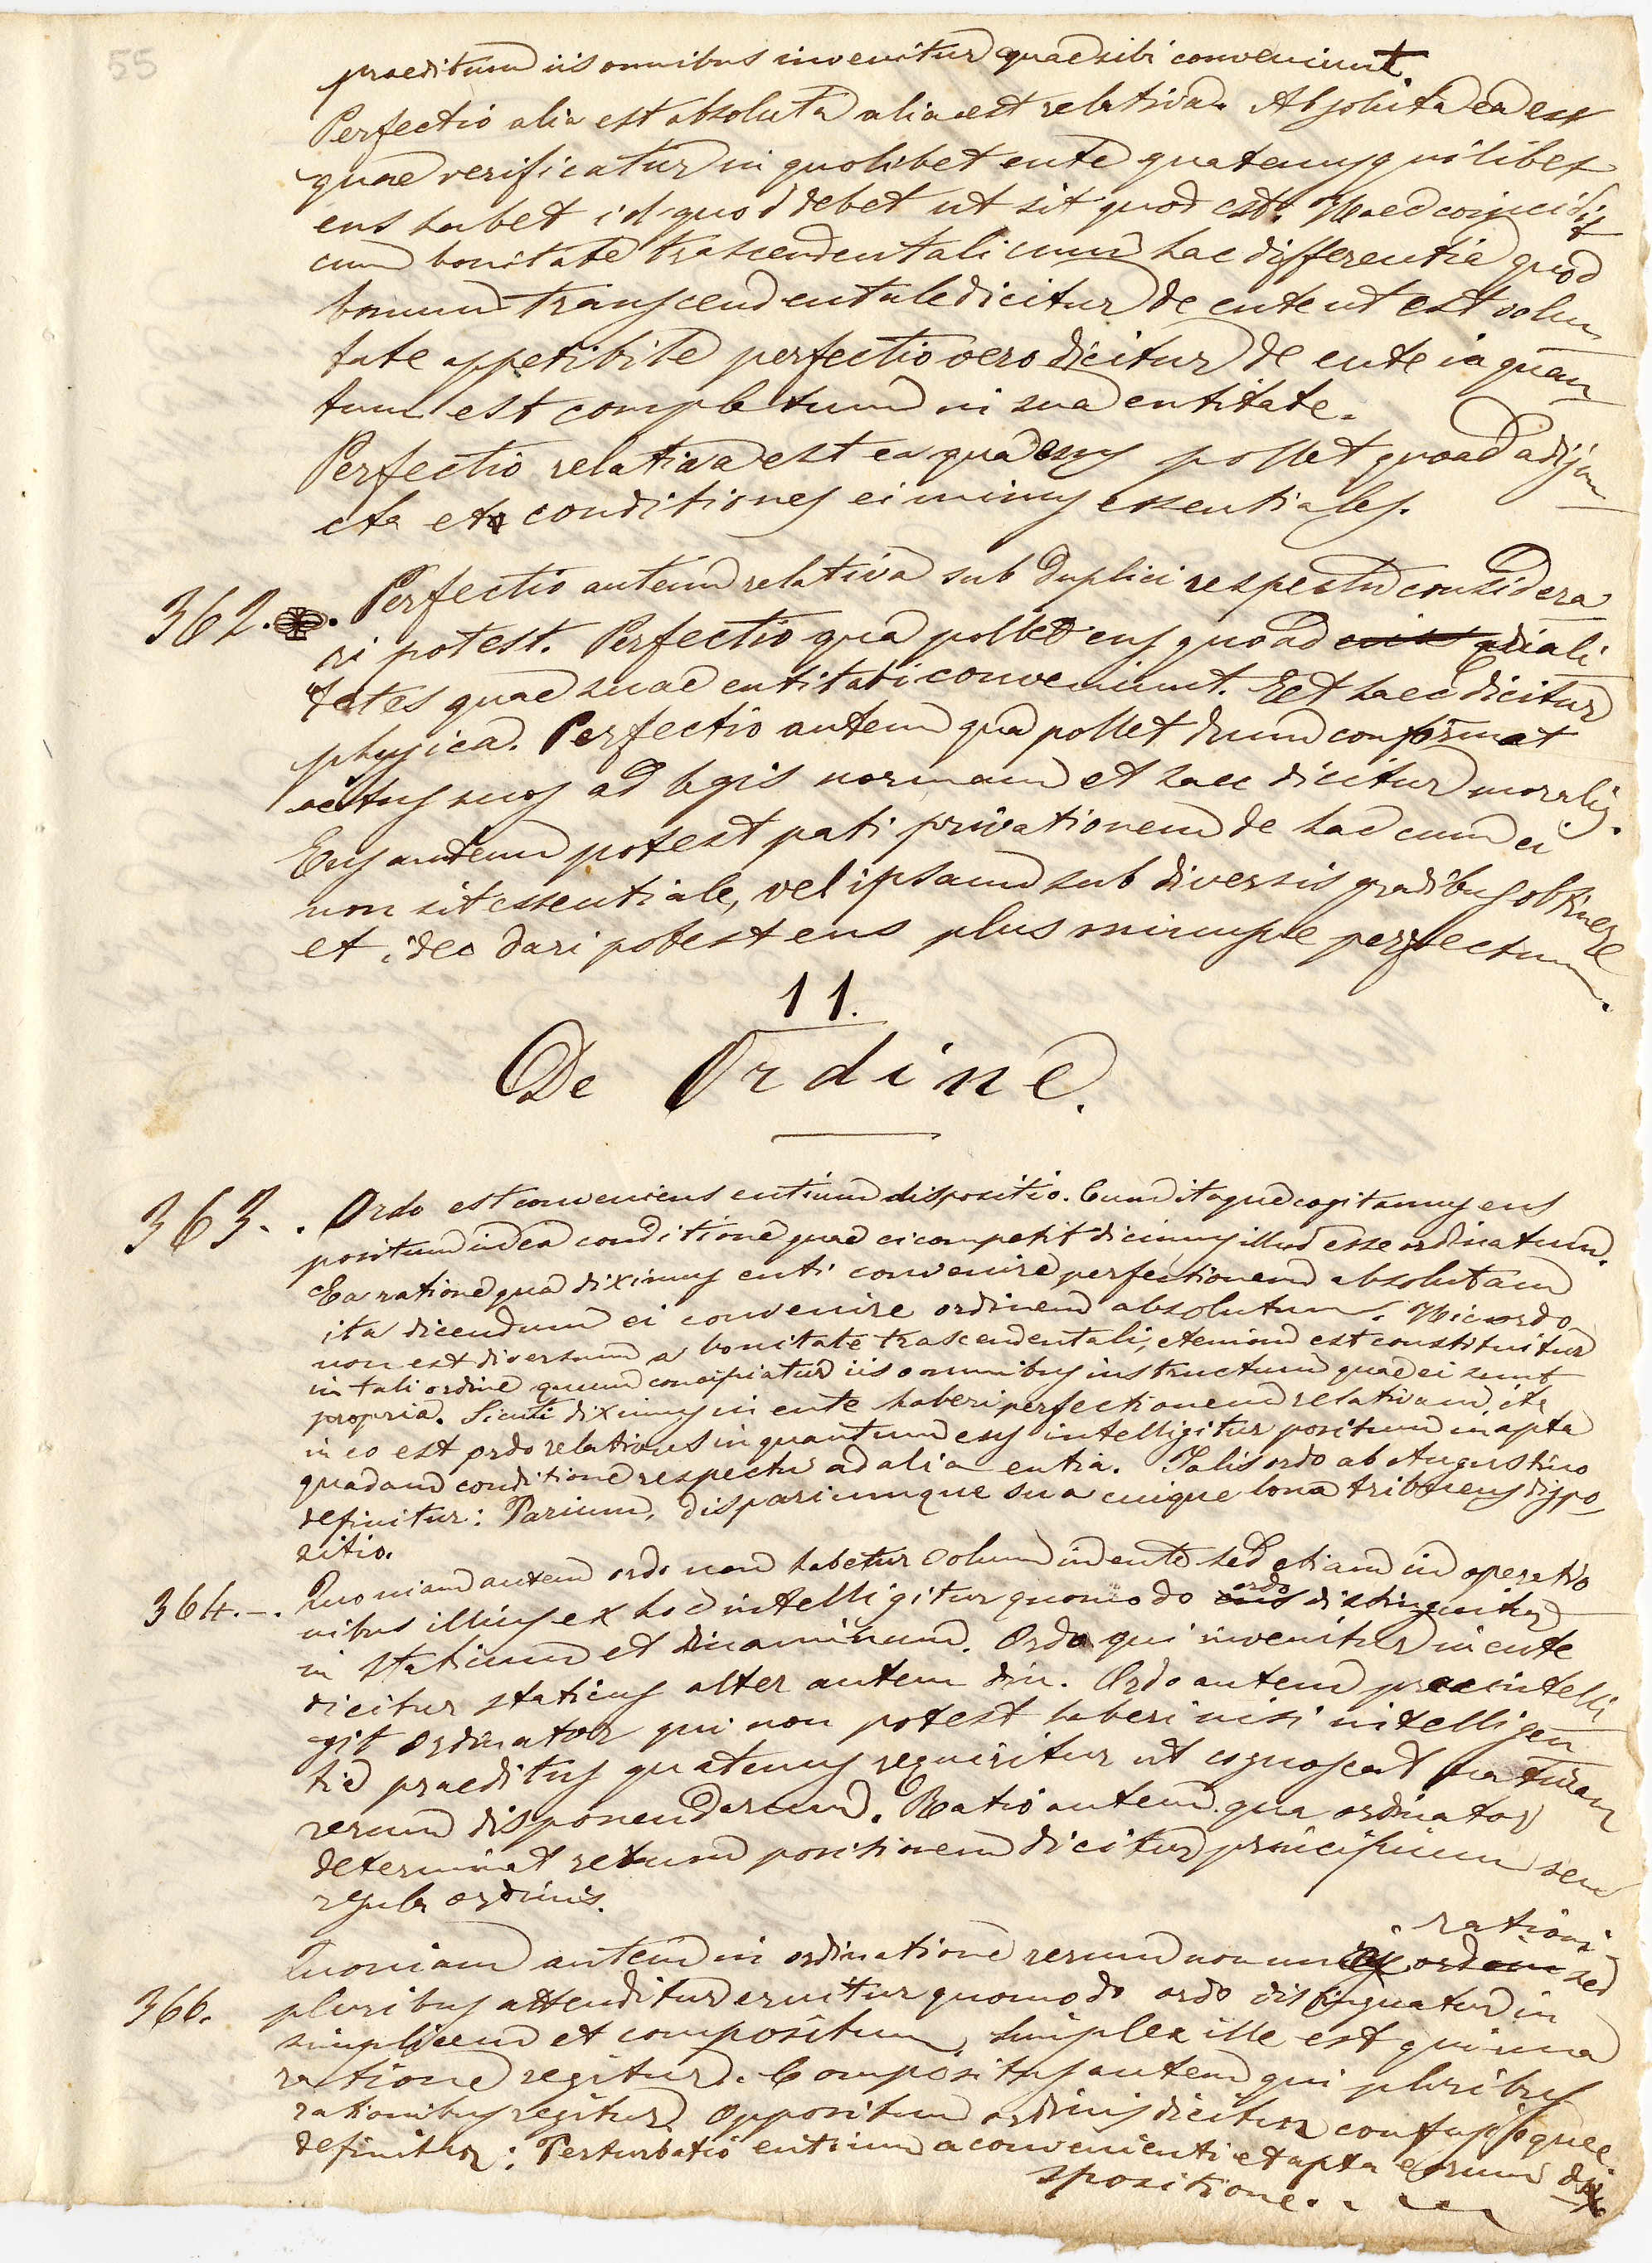 55
praeditum iis omnibus invenitur quae sibi conveniunt.
Perfectio alia est absoluta alia est relativa. Absoluta ea est
quae verificatur in quolibet ente quatenus quilibet
ens habet id quod debet ut sit quod est. Haec coincidit
cum bonitate trascendentali cum hac differentia quod
bonum transcendentale dicitur de ente ut est volun
tate appetibile perfectio vero dicitur de ente in quan
tum est completum in sua entitate.
Perfectio relativa est ea qua ens pollet quoad adjun
cta et conditiones ei minus essentiales.
362. Perfectio autem relativa sub duplici respectu considera
ri potest. Perfectio qua pollet ens quoad quali
tates quae suae entitati conveniunt. Et haec dicitur
physica. Perfectio autem qua pollet dum conformat
actus suos ad legis normam et haec dicitur moralis.
Ens autem potest pati privationem de hac cum ei
non sit essentiale, vel ipsam sub diversis gradibus obtinere
et ideo dari potest ens plus minusve perfectum.
11.
De Ordine.
363. Ordo est conveniens entium dispositio. Cum itaque cogitamus ens
positum in ea conditione quae ei competit dicimus illud esse ordinatum.
Ea ratione qua diximus enti convenire perfectionem absolutam
ita dicendum ei convenire ordinem absolutum. Hic ordo
non est diversum a bonitate trascendentali, etenim est constituitur
in tali ordine quum concipiatur iis omnibus instructum quae ei sunt
propria. Sicuti diximus in ente haberi perfectionem relativam ita
in eo est ordo relativus in quantum ens intelligitur positum in apta
quadam conditione respectu ad alia entia. Talis ordo ab Augustino
definitur: Parium, dispariumque sua cuique loca tribuens dispo-
sitio.
364. Quoniam autem ordo non habetur solum in ente sed etiam in operatio
nibus illius ex hoc intelligitur quomodo ens ordo distinguitur
in staticum et dinamicum. Ordo qui invenitur in ente
dicitur staticus alter autem din. Ordo autem praeintelli
git ordinator qui non potest haberi nisi intelligen
tia praeditus quatenus requiritur ut cognoscat naturam
rerum disponendarum. Ratio autem qua ordinator
determinat rerum positionem dicitur principium seu
regula ordinis.
Quoniam autem in ordinatione rerum non unius rationi sed
366. pluribus attenditur eruitur quomodo ordo distinguatur in
simplicem et compositum, simplex ille est qui una
ratione regitur. Compositus autem qui pluribus
rationibus regitur. Oppositum ordinis dicitur confusio quae
definitur: Perturbatio entium a convenienti et apta eorum di
spositione.